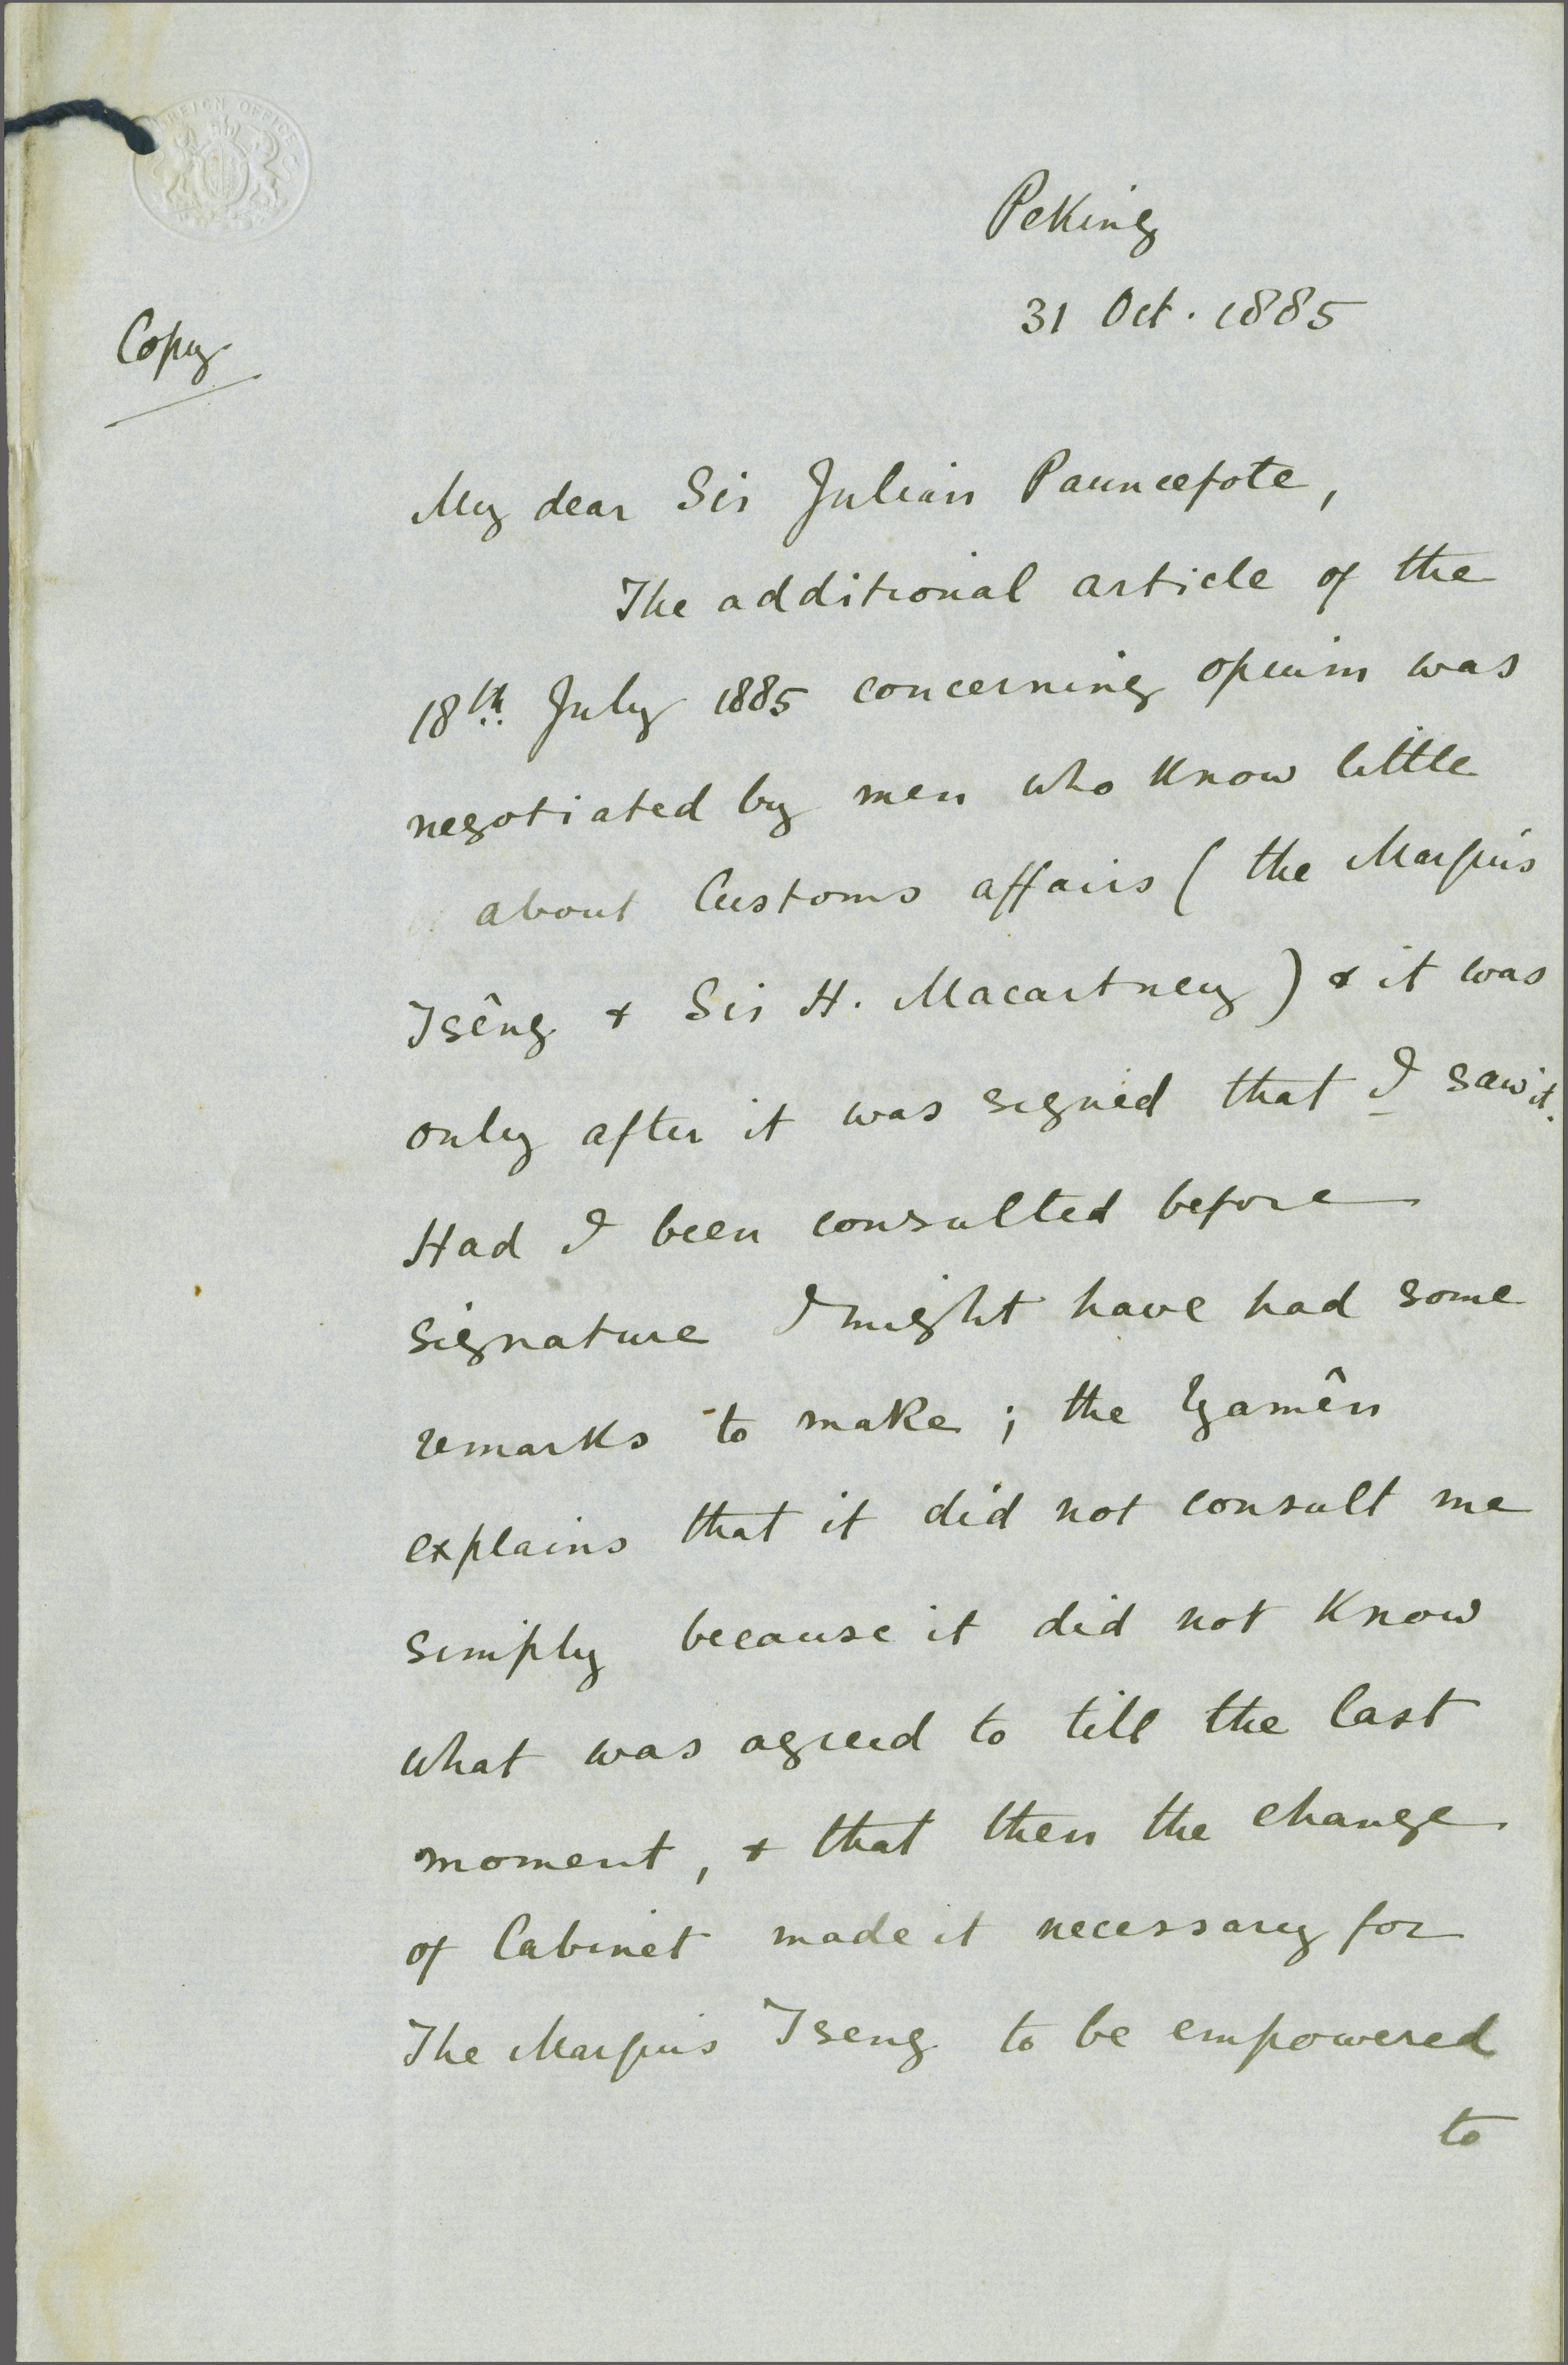 FOREIGN OFFICE
Peking
31 Oct. 1885
Copy
My dear Sir Julian Pauncefote,
The additional article of the
18th July 1885 concerning opium was
negotiated by men who know little
about Customs affairs (the Marquis
Tsêng + Sir H. Macartney) & it was
only after it was signed that I saw it.
Had I been consulted before
signature I might have had some
remarks to make; the Yamên
explains that it did not consult me
simply because it did not know
what was agreed to till the last
moment, + that then the change
of Cabinet made it necessary for
The Marquis Tseng to be empowered
to